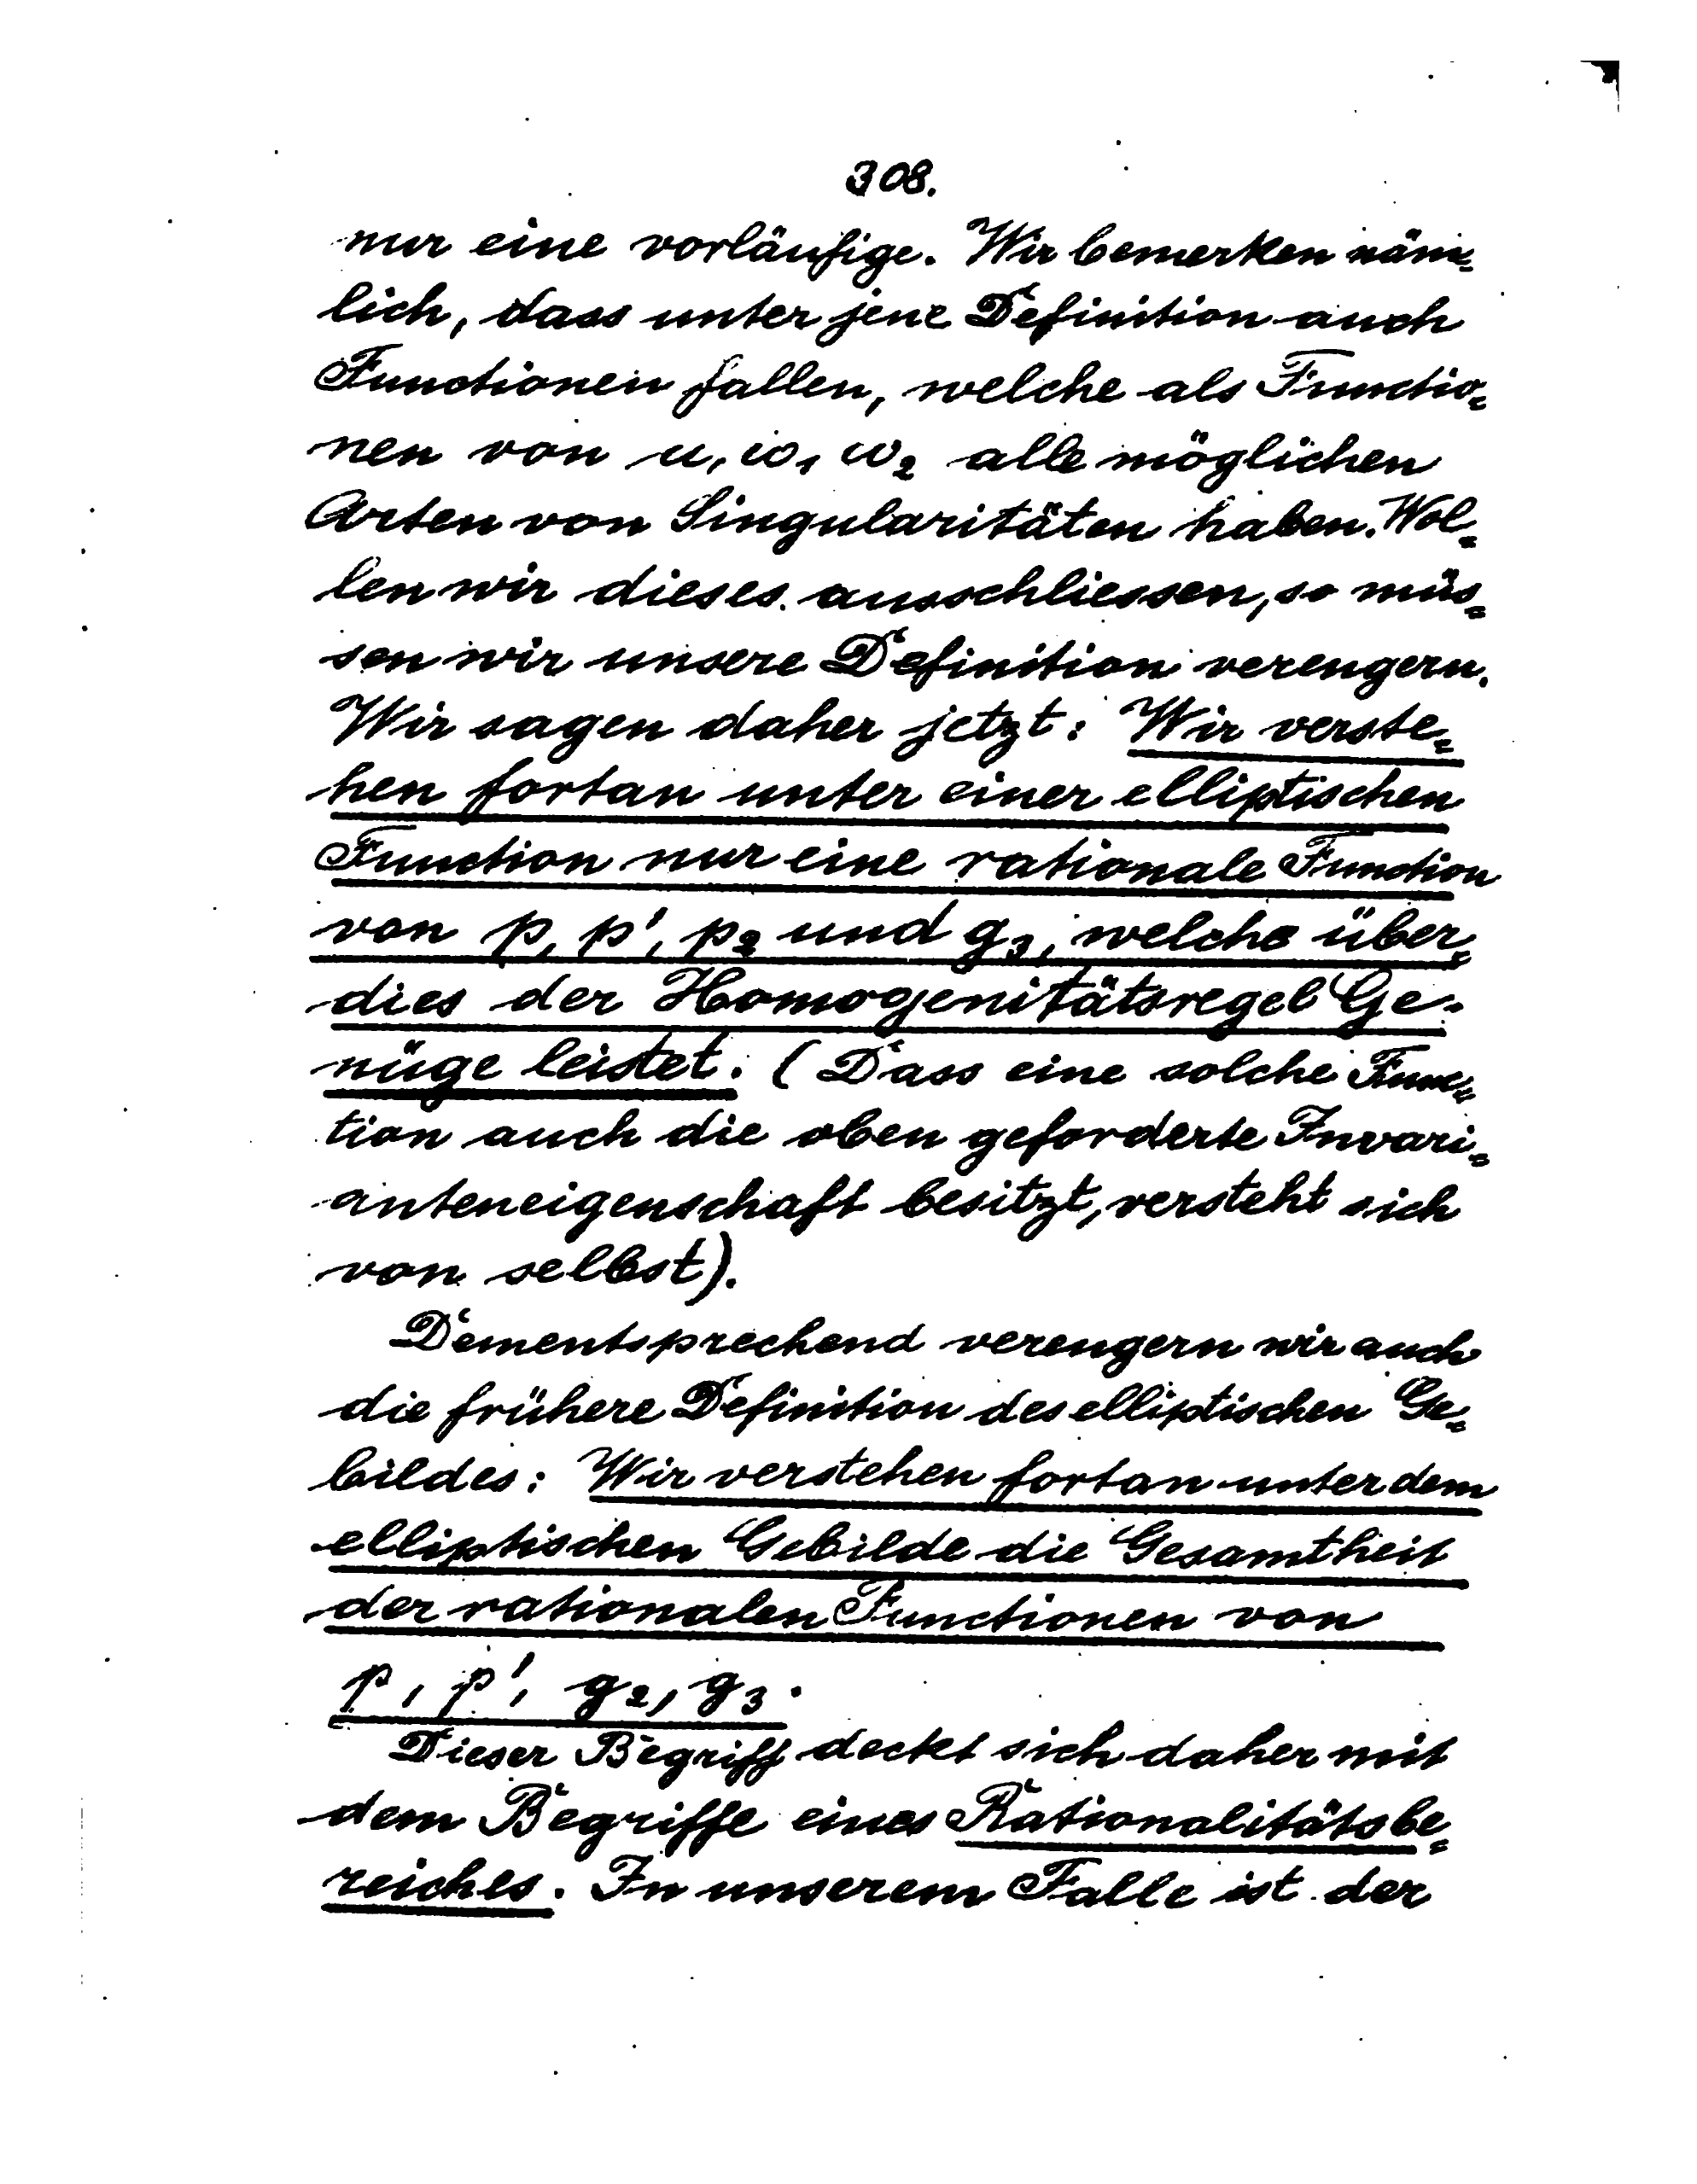 308.
nur eine vorläufige. Wir bemerken näm=
lich, dass unter jene Definition auch
Functionen fallen, welche als Functio=
nen von u, ω₁ ω₂ alle möglichen
Arten von Singularitäten haben. Wol=
len wir dieses ausschliessen, so müs=
sen wir unsere Definition verengern.
Wir sagen daher jetzt: Wir verste=
hen fortan unter einer elliptischen
Function nur eine rationale Function
von p, p', p₂ und g₃, welche über=
dies der Homogenitätsregel Ge=
nüge leistet. (Dass eine solche Func=
tion auch die oben geforderte Invari=
anteneigenschaft besitzt, versteht sich
von selbst).
Dementsprechend verengern wir auch
die frühere Definition des elliptischen Ge=
bildes: Wir verstehen fortan unter dem
elliptischen Gebilde die Gesamtheit
der rationalen Functionen von
p, p', g₂, g₃.
Dieser Begriff deckt sich daher mit
dem Begriffe eines Rationalitätsbe=
reiches. In unserem Falle ist der